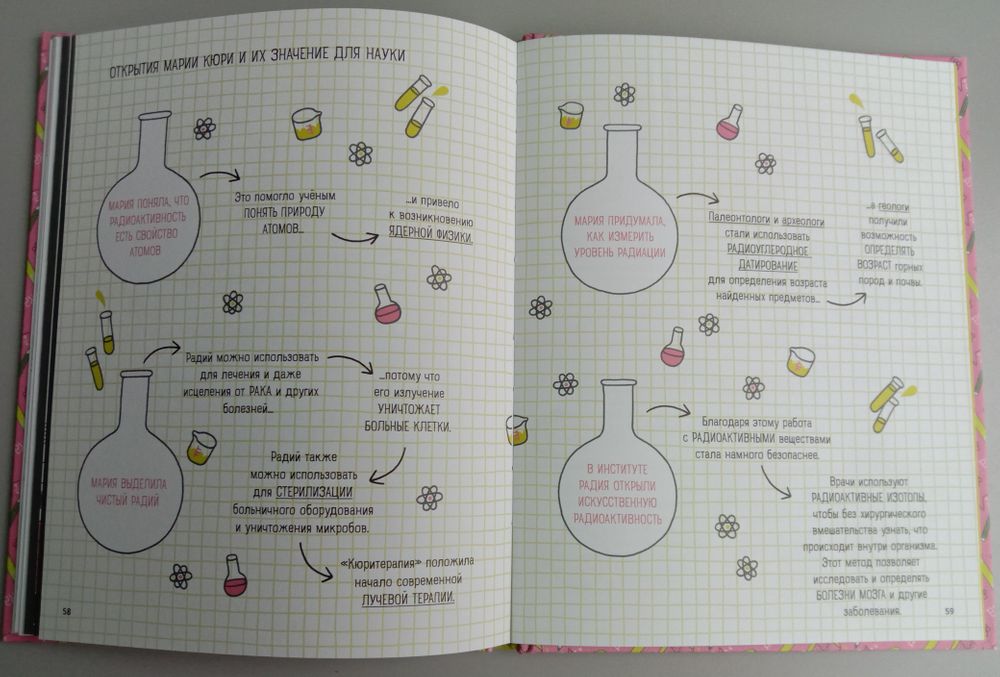 ОТКРЫТИЯ МАРИИ КЮРИ И ИХ ЗНАЧЕНИЕ ДЛЯ НАУКИ
МАРИЯ ПОНЯЛА, ЧТО
РАДИОАКТИВНОСТЬ
ЕСТЬ СВОЙСТВО
АТОМОВ
Это помогло учёным
ПОНЯТЬ ПРИРОДУ
АТОМОВ...
...и привело
к возникновению
ЯДЕРНОЙ ФИЗИКИ.
МАРИЯ ВЫДЕЛИЛА
ЧИСТЫЙ РАДИЙ
Радий можно использовать
для лечения и даже
исцеления от РАКА и других
болезней...
...потому что
его излучение
УНИЧТОЖАЕТ
БОЛЬНЫЕ КЛЕТКИ.
Радий также
можно использовать
для СТЕРИЛИЗАЦИИ
больничного оборудования
и уничтожения микробов.
«Кюритерапия» положила
начало современной
ЛУЧЕВОЙ ТЕРАПИИ.
58
МАРИЯ ПРИДУМАЛА,
КАК ИЗМЕРИТЬ
УРОВЕНЬ РАДИАЦИИ
Палеонтологи и археологи
стали использовать
РАДИОУГЛЕРОДНОЕ
ДАТИРОВАНИЕ
для определения возраста
найденных предметов...
...а геологи
получили
возможность
ОПРЕДЕЛЯТЬ
ВОЗРАСТ горных
пород и почвы.
В ИНСТИТУТЕ
РАДИЯ ОТКРЫЛИ
ИСКУССТВЕННУЮ
РАДИОАКТИВНОСТЬ
Благодаря этому работа
с РАДИОАКТИВНЫМИ веществами
стала намного безопаснее.
Врачи используют
РАДИОАКТИВНЫЕ ИЗОТОПЫ,
чтобы без хирургического
вмешательства узнать, что
происходит внутри организма.
Этот метод позволяет
исследовать и определять
БОЛЕЗНИ МОЗГА и другие
заболевания.
59